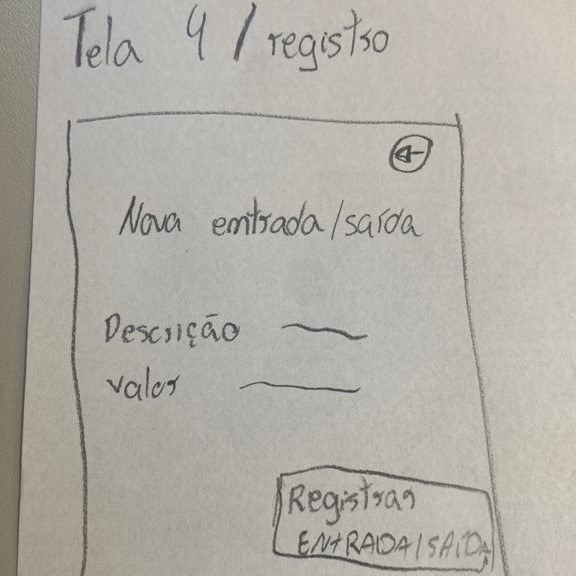 Tela 4 / registro
Nova entrada/saída
Descrição
valor
Registrar
ENTRADA/SAÍDA